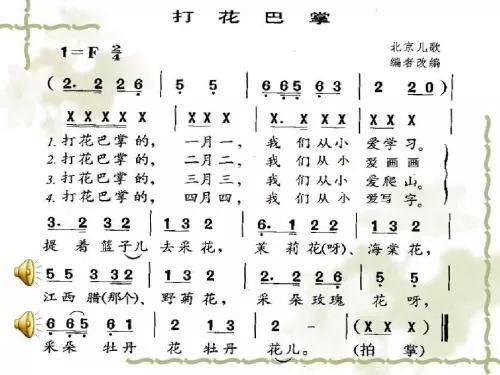 打花巴掌
1=F 2/4
北京儿歌
编者改编
( 2. 2 2 6 | 5 5 | 6 6 5 6 3 | 2 2 0 )
X X X X X | X X X | X X X X | X X X
1.打花巴掌的, 一月一, 我们从小 爱学习。
2.打花巴掌的, 二月二, 我们从小 爱画画
3.打花巴掌的, 三月三, 我们从小 爱爬山。
4.打花巴掌的, 四月四, 我们从小 爱写字。
3. 2 3 2 | 1 3 2 | 6. 1 2 3 | 1 3 2
提着篮子儿 去采花, 茉莉花(呀)、海棠花,
5 5 3 3 2 | 1 3 2 | 6 2 2 6 | 5 5
江西腊(那个)、野菊花, 采朵玫瑰 花呀,
6 6 5 6 1 | 2 1 3 | 2 2 0 | (X X X)
采朵 牡丹 花 牡丹 花儿。 (拍 掌)